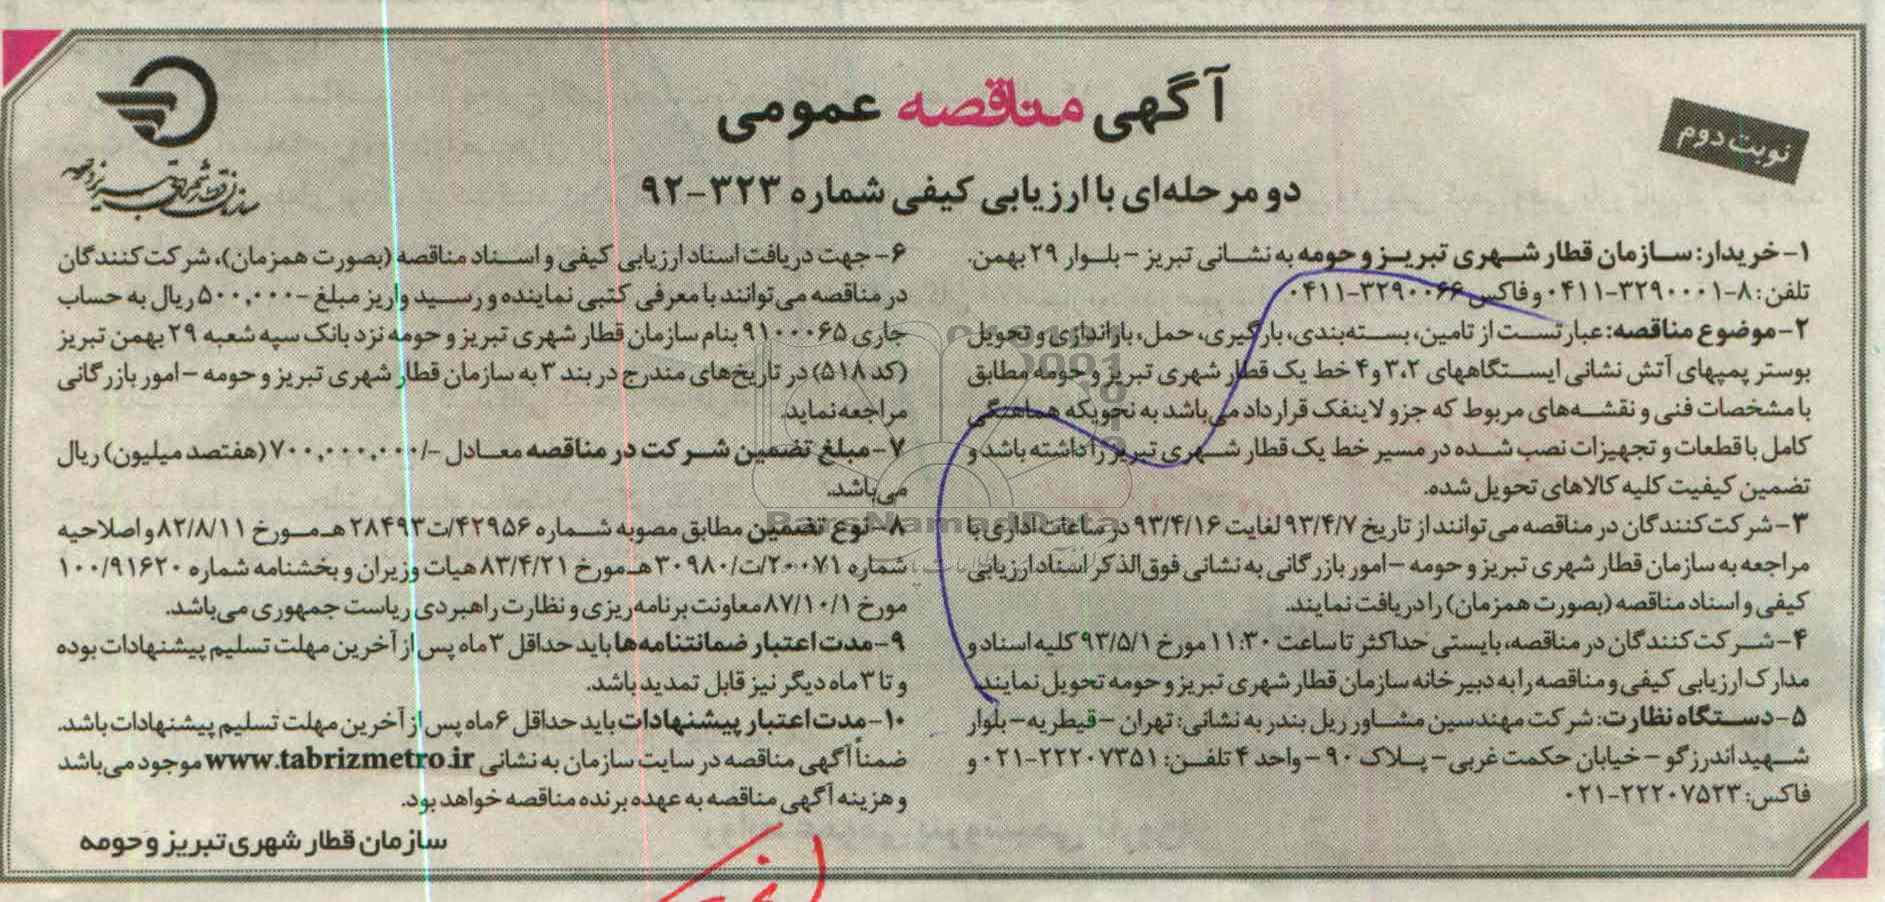 نوبت دوم
آگهی مناقصه عمومی
دو مرحله‌ای با ارزیابی کیفی شماره ۳۲۳-۹۲
سازمان قطار شهری تبریز و حومه
۱- خریدار: سازمان قطار شهری تبریز و حومه به نشانی تبریز - بلوار ۲۹ بهمن.
تلفن: ۸-۳۲۹۰۰۰۱-۰۴۱۱ و فاکس ۳۲۹۰۰۶۶-۰۴۱۱
۲- موضوع مناقصه: عبارتست از تامین، بسته‌بندی، بارگیری، حمل، باراندازی و تحویل
بوستر پمپهای آتش نشانی ایستگاههای ۳،۲ و ۴ خط یک قطار شهری تبریز و حومه مطابق
با مشخصات فنی و نقشه‌های مربوط که جزو لاینفک قرارداد می‌باشد به نحویکه هماهنگی
کامل با قطعات و تجهیزات نصب شده در مسیر خط یک قطار شهری تبریز را داشته باشد و
تضمین کیفیت کلیه کالاهای تحویل شده.
۳- شرکت‌کنندگان در مناقصه می‌توانند از تاریخ ۹۳/۴/۷ لغایت ۹۳/۴/۱۶ در ساعات اداری با
مراجعه به سازمان قطار شهری تبریز و حومه - امور بازرگانی به نشانی فوق‌الذکر اسناد ارزیابی
کیفی و اسناد مناقصه (بصورت همزمان) را دریافت نمایند.
۴- شرکت‌کنندگان در مناقصه، بایستی حداکثر تا ساعت ۱۱:۳۰ مورخ ۹۳/۵/۱ کلیه اسناد و
مدارک ارزیابی کیفی و مناقصه را به دبیرخانه سازمان قطار شهری تبریز و حومه تحویل نمایند.
۵- دستگاه نظارت: شرکت مهندسین مشاور ریل بندر به نشانی: تهران - قیطریه - بلوار
شهید اندرزگو - خیابان حکمت غربی - پلاک ۹۰ - واحد ۴ تلفن: ۲۲۲۰۷۳۵۱-۰۲۱ و
فاکس: ۲۲۲۰۷۵۲۳-۰۲۱
۶- جهت دریافت اسناد ارزیابی کیفی و اسناد مناقصه (بصورت همزمان)، شرکت‌کنندگان
در مناقصه می‌توانند با معرفی کتبی نماینده و رسید واریز مبلغ -۵۰۰,۰۰۰ ریال به حساب
جاری ۹۱۰۰۰۶۵ بنام سازمان قطار شهری تبریز و حومه نزد بانک سپه شعبه ۲۹ بهمن تبریز
(کد ۵۱۸) در تاریخ‌های مندرج در بند ۳ به سازمان قطار شهری تبریز و حومه - امور بازرگانی
مراجعه نماید.
۷- مبلغ تضمین شرکت در مناقصه معادل -/۷۰۰,۰۰۰,۰۰۰ (هفتصد میلیون) ریال
می‌باشد.
۸- نوع تضمین مطابق مصوبه شماره ۴۲۹۵۶/ت۲۸۴۹۳ هـ مورخ ۸۲/۸/۱۱ و اصلاحیه
شماره ۲۰۰۷۱/ت/۳۰۹۸۰ هـ مورخ ۸۳/۴/۲۱ هیات وزیران و بخشنامه شماره ۱۰۰/۹۱۶۲۰
مورخ ۸۷/۱۰/۱ معاونت برنامه‌ریزی و نظارت راهبردی ریاست جمهوری می‌باشد.
۹- مدت اعتبار ضمانتنامه‌ها باید حداقل ۳ ماه پس از آخرین مهلت تسلیم پیشنهادات بوده
و تا ۳ ماه دیگر نیز قابل تمدید باشد.
۱۰- مدت اعتبار پیشنهادات باید حداقل ۶ ماه پس از آخرین مهلت تسلیم پیشنهادات باشد.
ضمناً آگهی مناقصه در سایت سازمان به نشانی www.tabrizmetro.ir موجود می‌باشد
و هزینه آگهی مناقصه به عهده برنده مناقصه خواهد بود.
سازمان قطار شهری تبریز و حومه